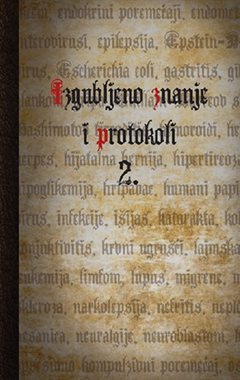 endokrini poremećaji, endomet
nterovirusi, epilepsija, Epstein-
Escherichia coli, gastritis,
Izgubljeno znanje
i protokoli
2.
herpes, hijatalna hernija, hipertireoz
hipoglikemija, hripavac, humani papi
virus, infekcije, išijas, katarakta,
konjuktivitis, krvni ugrušci, lajmska
leukemija, limfom, lupus, migrene,
skleroza, narkolepsija, nefritis,
nesanica, neuralgije, neuroblastom,
opsesivno kompulzivni poremećaj,